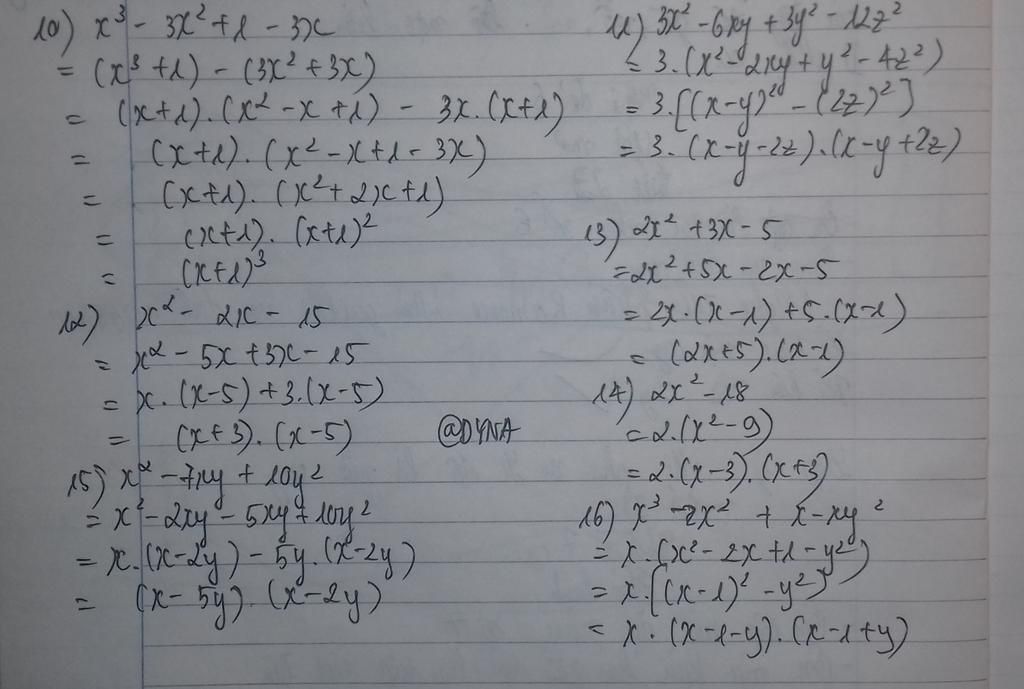 10) x³ - 3x² + 1 - 3x
= (x³ + 1) - (3x² + 3x)
= (x+1).(x² - x + 1) - 3x.(x+1)
= (x+1).(x² - x + 1 - 3x)
= (x+1).(x² + 2x + 1)
= (x+1).(x+1)²
= (x+1)³
12) x² - 2x - 15
= x² - 5x + 3x - 15
= x.(x-5) + 3.(x-5)
= (x+3).(x-5)
@DYNA
15) x² - 7xy + 10y²
= x² - 2xy - 5xy + 10y²
= x.(x-2y) - 5y.(x-2y)
= (x-5y).(x-2y)
11) 3x² - 6xy + 3y² - 12z²
= 3.(x² - 2xy + y² - 4z²)
= 3.[(x-y)² - (2z)²]
= 3.(x-y-2z).(x-y+2z)
13) 2x² + 3x - 5
= 2x² + 5x - 2x - 5
= 2x.(x-1) + 5.(x-1)
= (2x+5).(x-1)
14) 2x² - 18
= 2.(x² - 9)
= 2.(x-3).(x+3)
16) x³ - 2x² + x - xy²
= x.(x² - 2x + 1 - y²)
= x.[(x-1)² - y²]
= x.(x-1-y).(x-1+y)